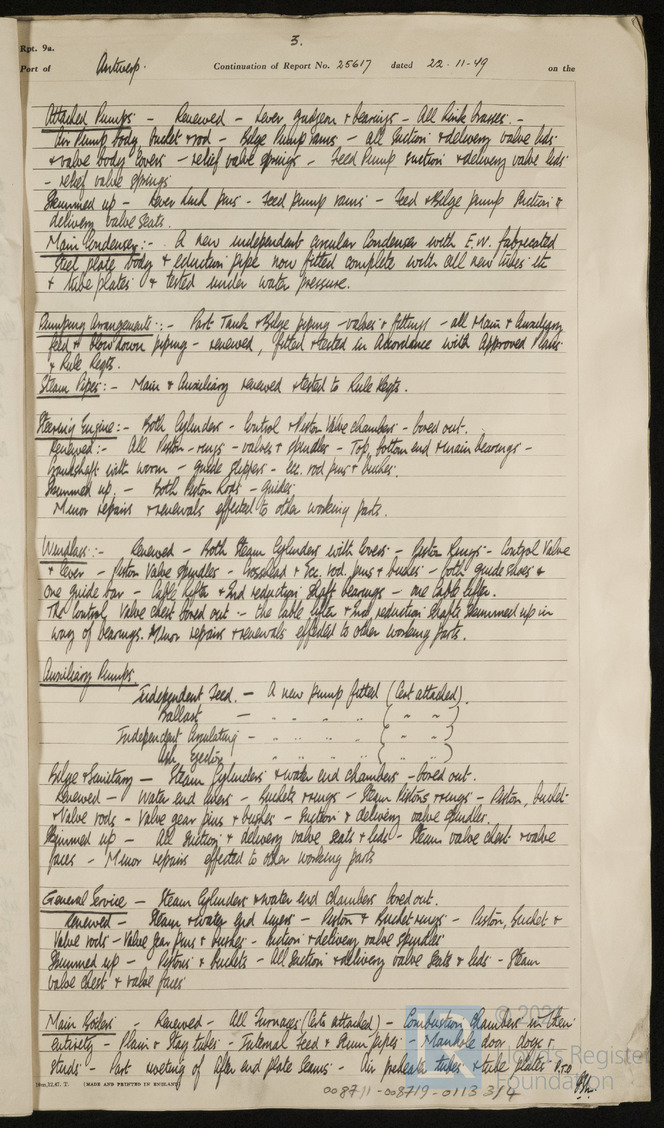 3.
Rpt. 9a.
Port of Antwerp. Continuation of Report No. 25617 dated 22-11-49 on the
Attached Pumps - Renewed - Lever gudgeon & bearings - All link brasses. -
Air Pump body bucket & rod - Bilge Pump rams - all suction & delivery valve lids
& valve body covers - relief valve springs - Feed Pump suction & delivery valve lids
- relief valve springs
Skimmed up - Lever link pins - Feed pump rams - Feed & Bilge pump suction &
delivery valve seats.
Main Condenser:- A new independent circular Condenser with E.W. fabricated
steel plate body & eduction pipe now fitted complete with all new tubes etc
& tube plates & tested under water pressure.
Pumping Arrangements:- Part Tank & Bilge piping - valves & fittings - all Main & Auxiliary
feed & blow down piping - renewed, fitted & tested in Accordance with Approved Plans
& Rule Reqts.
Steam Pipes:- Main & Auxiliary renewed & tested to Rule Reqts.
Steering Engine:- Both Cylinders - Control & Piston Valve chambers - bored out.
Renewed:- All Piston-rings - valves & spindles - Top, bottom end & main bearings -
Crankshaft with worm - guide slippers - Ecc. rod pins & bushes.
Skimmed up - Both Piston Rods - guides
Minor repairs & renewals effected to other working parts.
Windlass:- Renewed - Both Steam Cylinders with Covers - Piston Rings - Control Valve
& lever - Piston Valve Spindles - Crosshead & Ecc. rod. pins & bushes - both guide shoes &
one guide bar - Cable lifter & 2nd reduction shaft bearings - one Cable lifter.
The Control Valve chest bored out - the cable lifter & 2nd reduction shafts skimmed up in
way of bearings. Minor repairs & renewals effected to other working parts.
Auxiliary Pumps.
Independent Feed. - A new pump fitted (Cert attached).
Ballast - " " " " ( " " )
Independent Circulating - " " " " ( " " )
Ash Ejecting " " " " ( " " )
Bilge & Sanitary - Steam Cylinders & water end chambers - bored out.
Renewed - Water end liners - Buckets & rings - Steam Pistons & rings - Piston, bucket
& Valve rods - Valve gear pins & bushes - Suction & delivery valve spindles.
Skimmed up - All Suction & delivery valve seats & lids - Steam valve chest & valve
faces - Minor repairs effected to other working parts
General Service - Steam Cylinders & water end chambers bored out.
Renewed - Steam & water end liners - Piston & Bucket rings - Piston, bucket &
Valve rods - Valve gear pins & bushes - Suction & delivery valve spindles
Skimmed up - Pistons & Buckets - All Suction & delivery valve seats & lids - Steam
valve chest & valve faces
Main Boilers - Renewed - All Furnaces (Certs attached) - Combustion Chambers in their
entirety - Plain & Stay tubes - Internal Feed & Scum pipes - Manhole door dogs &
studs - Part riveting of after end plate seams - Air preheater tubes & tube plates P.T.O
10m,12,47. T. (MADE AND PRINTED IN ENGLAND)
008711-008719-0113 3/4
© 2021
Lloyd's Register
Foundation